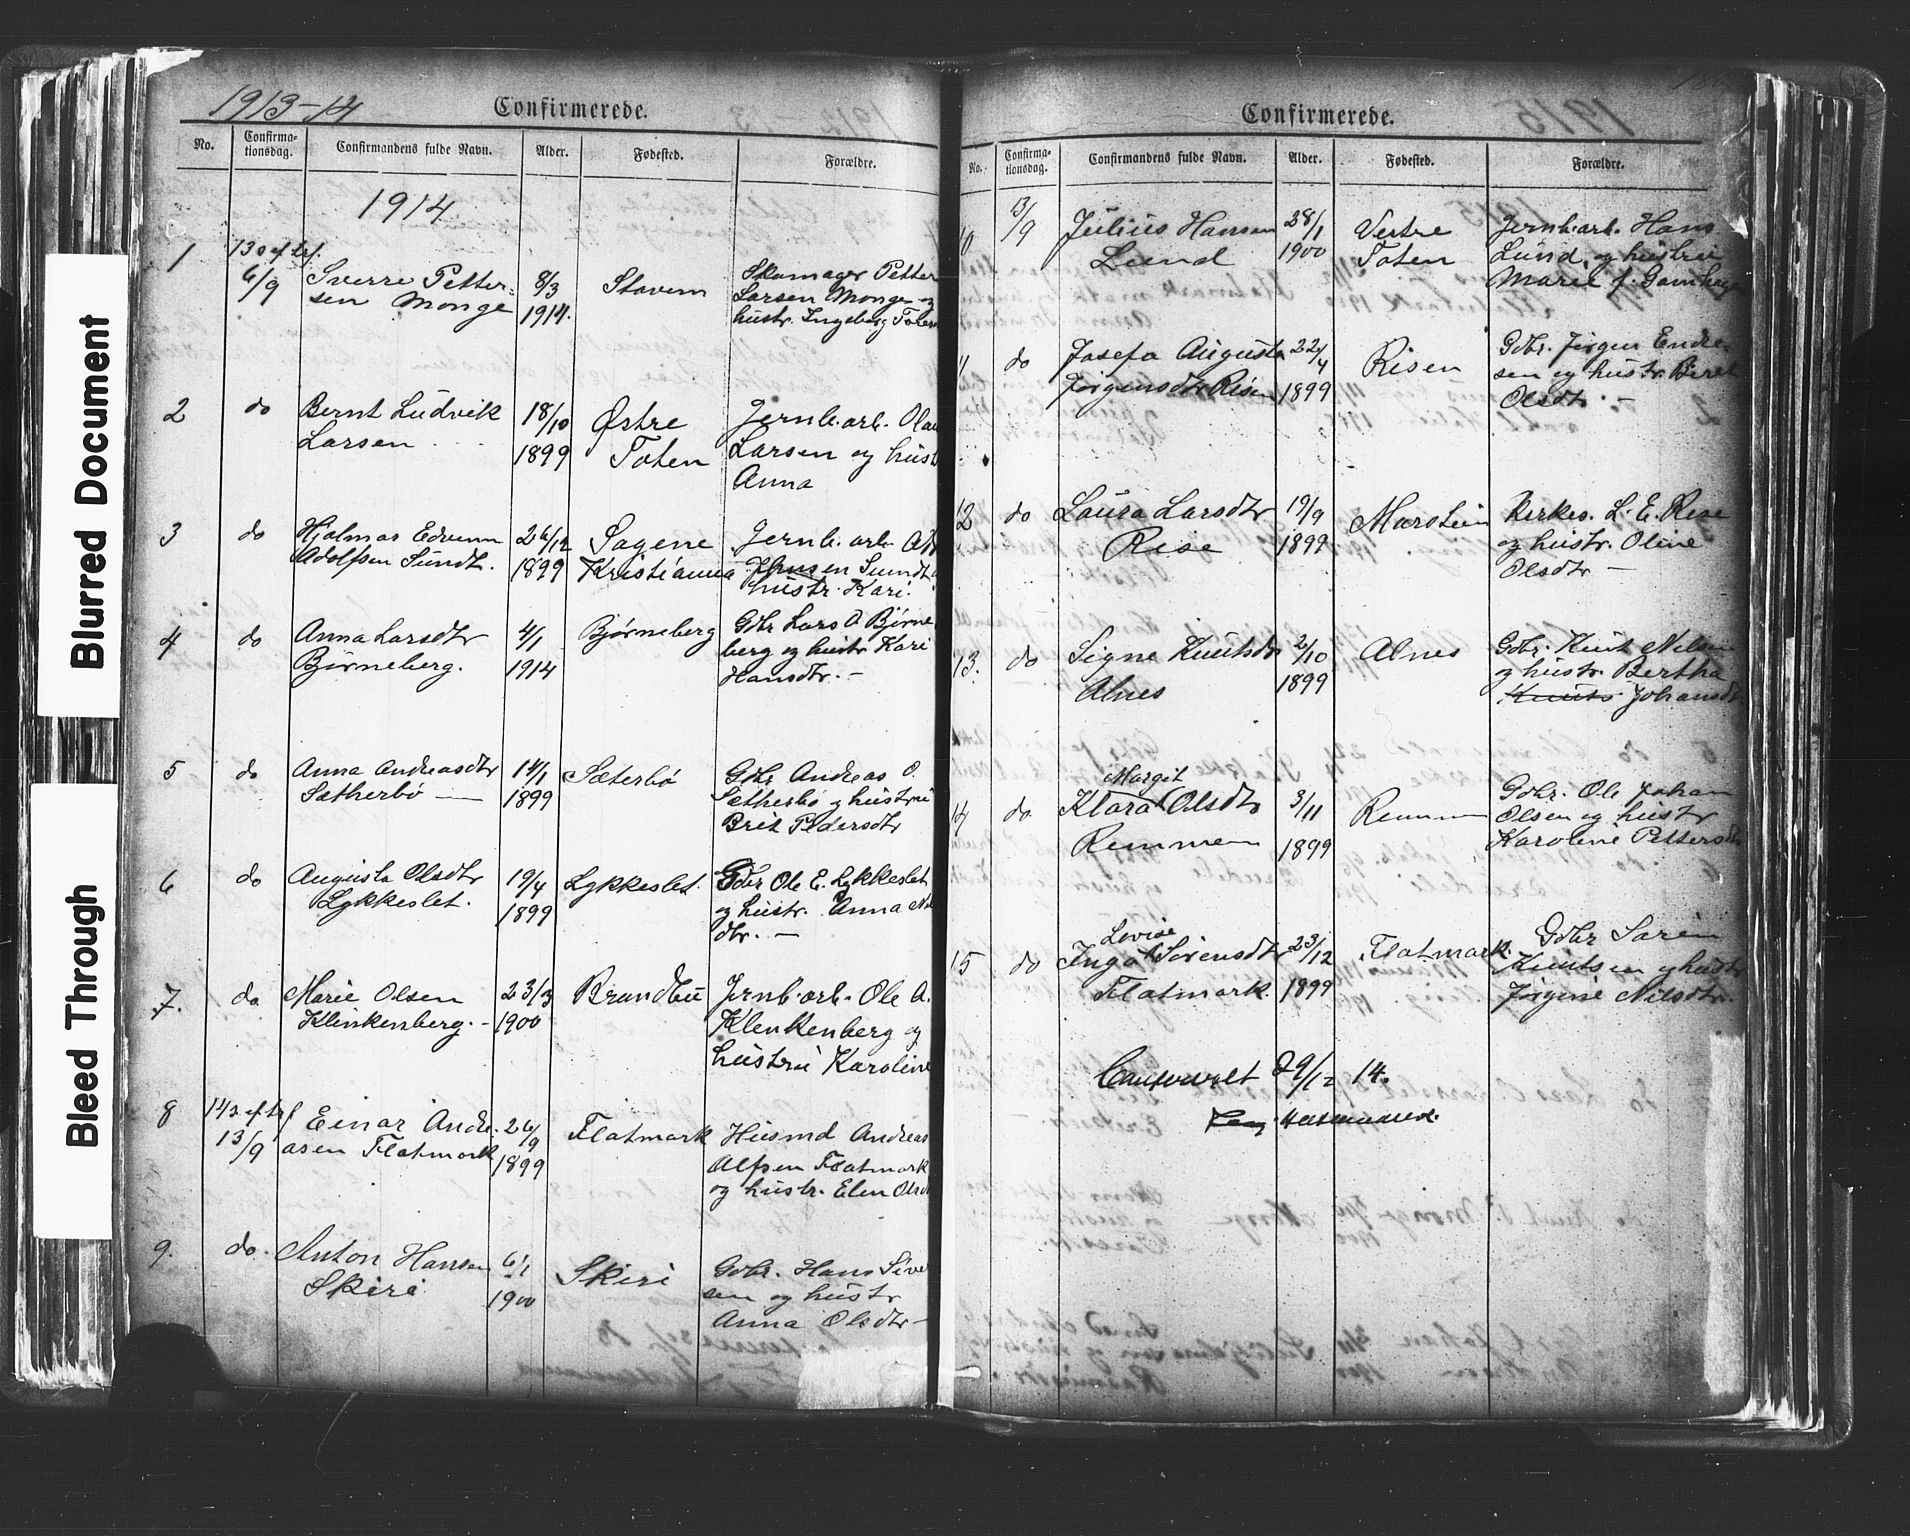 Blurred Document
Bleed Through
1913-14
Confirmerede.
No. Confirmationsdag. Confirmandens fulde Navn. Alder. Fødested. Forældre.
1914
1 13 s. eftr. 6/9 Sverre Petter- 8/3 Stavern Skomager Petter
sen Monge 1914. Larsen Monge og
hustr. Ingeborg
2 do Bernt Ludvik 18/10 Østre Jernb.arb. Olaus
Larsen 1899 Toten Larsen og hustr
Anna
3 do Hjalmar Edvenn 26/12 Sagene Jernb. arb.
Adolfsen Sundt. 1899 Kristianna Jhnsen Sundt
hustr. Kari.
4 do Anna Larsdtr 4/1 Bjørneberg Gdbr Lars A Bjørne
Bjørneberg. 1914 berg og hustr Kari
Hansdtr. -
5 do Anna Andreasdtr 14/1 Sæterbø Gdbr Andreas O.
Sætherbø 1899 Sætherbø og hustru
Brit Pedersdtr
6 do Augusta Olsdtr 19/4 Lykkeslet. Gdbr Ole E. Lykkeslet
Lykkeslet. 1899 og hustr. Anna
dtr. -
7. do Marie Olsen 23/3 Brandbu Jernb.arb. Ole A.
Klinkenberg. - 1900 Klenkenberg og
hustru Karoline
8 14 s eftr f Einar Andre- 26/9 Flatmark Husmd Andreas
13/9 asen Flatmark 1899 Alfsen Flatmark
og hustr. Elen Olsd
9. do. Anton Hansen 6/1 Skiri Gdbr. Hans Sive
Skiri 1900 sen og hustr
Anna Olsdtr -
1915
Confirmerede.
No. Confirmationsdag. Confirmandens fulde Navn. Alder. Fødested. Forældre.
10 13/9 Julius Hansen 28/1 Vestre Jernb.arb. Hans
Lund 1900 Toten Lund, og hustru
Marie f.
11 do Josefa Augusta 22/4 Risen Gdbr. Jørgen Endre-
Jørgensdtr Risen 1899 sen og hustr. Beret
Olsdtr -
12 do Laura Larsdtr 19/9 Marstein Kirkes. L. E. Rise
Rise 1899 og hustr. Oline
Olsdtr -
13. do Signe Knutsdtr 2/10 Alnes Gdbr. Knut Nilsen
Alnes 1899 og hustr. Bertha
Knuts Johansdtr
Margit
14 do. Klara Olsdtr 3/11 Remmen Gdbr. Ole Johan
Remmen 1899 Olsen og hustr
Karoline Pettersdtr
Lovise
15 do Inga Sørensdtr 23/12 Flatmark. Gdbr Søren
Flatmark. 1899 Knutsen og hustr
Jørgine Nilsdtr.
29/12 14.